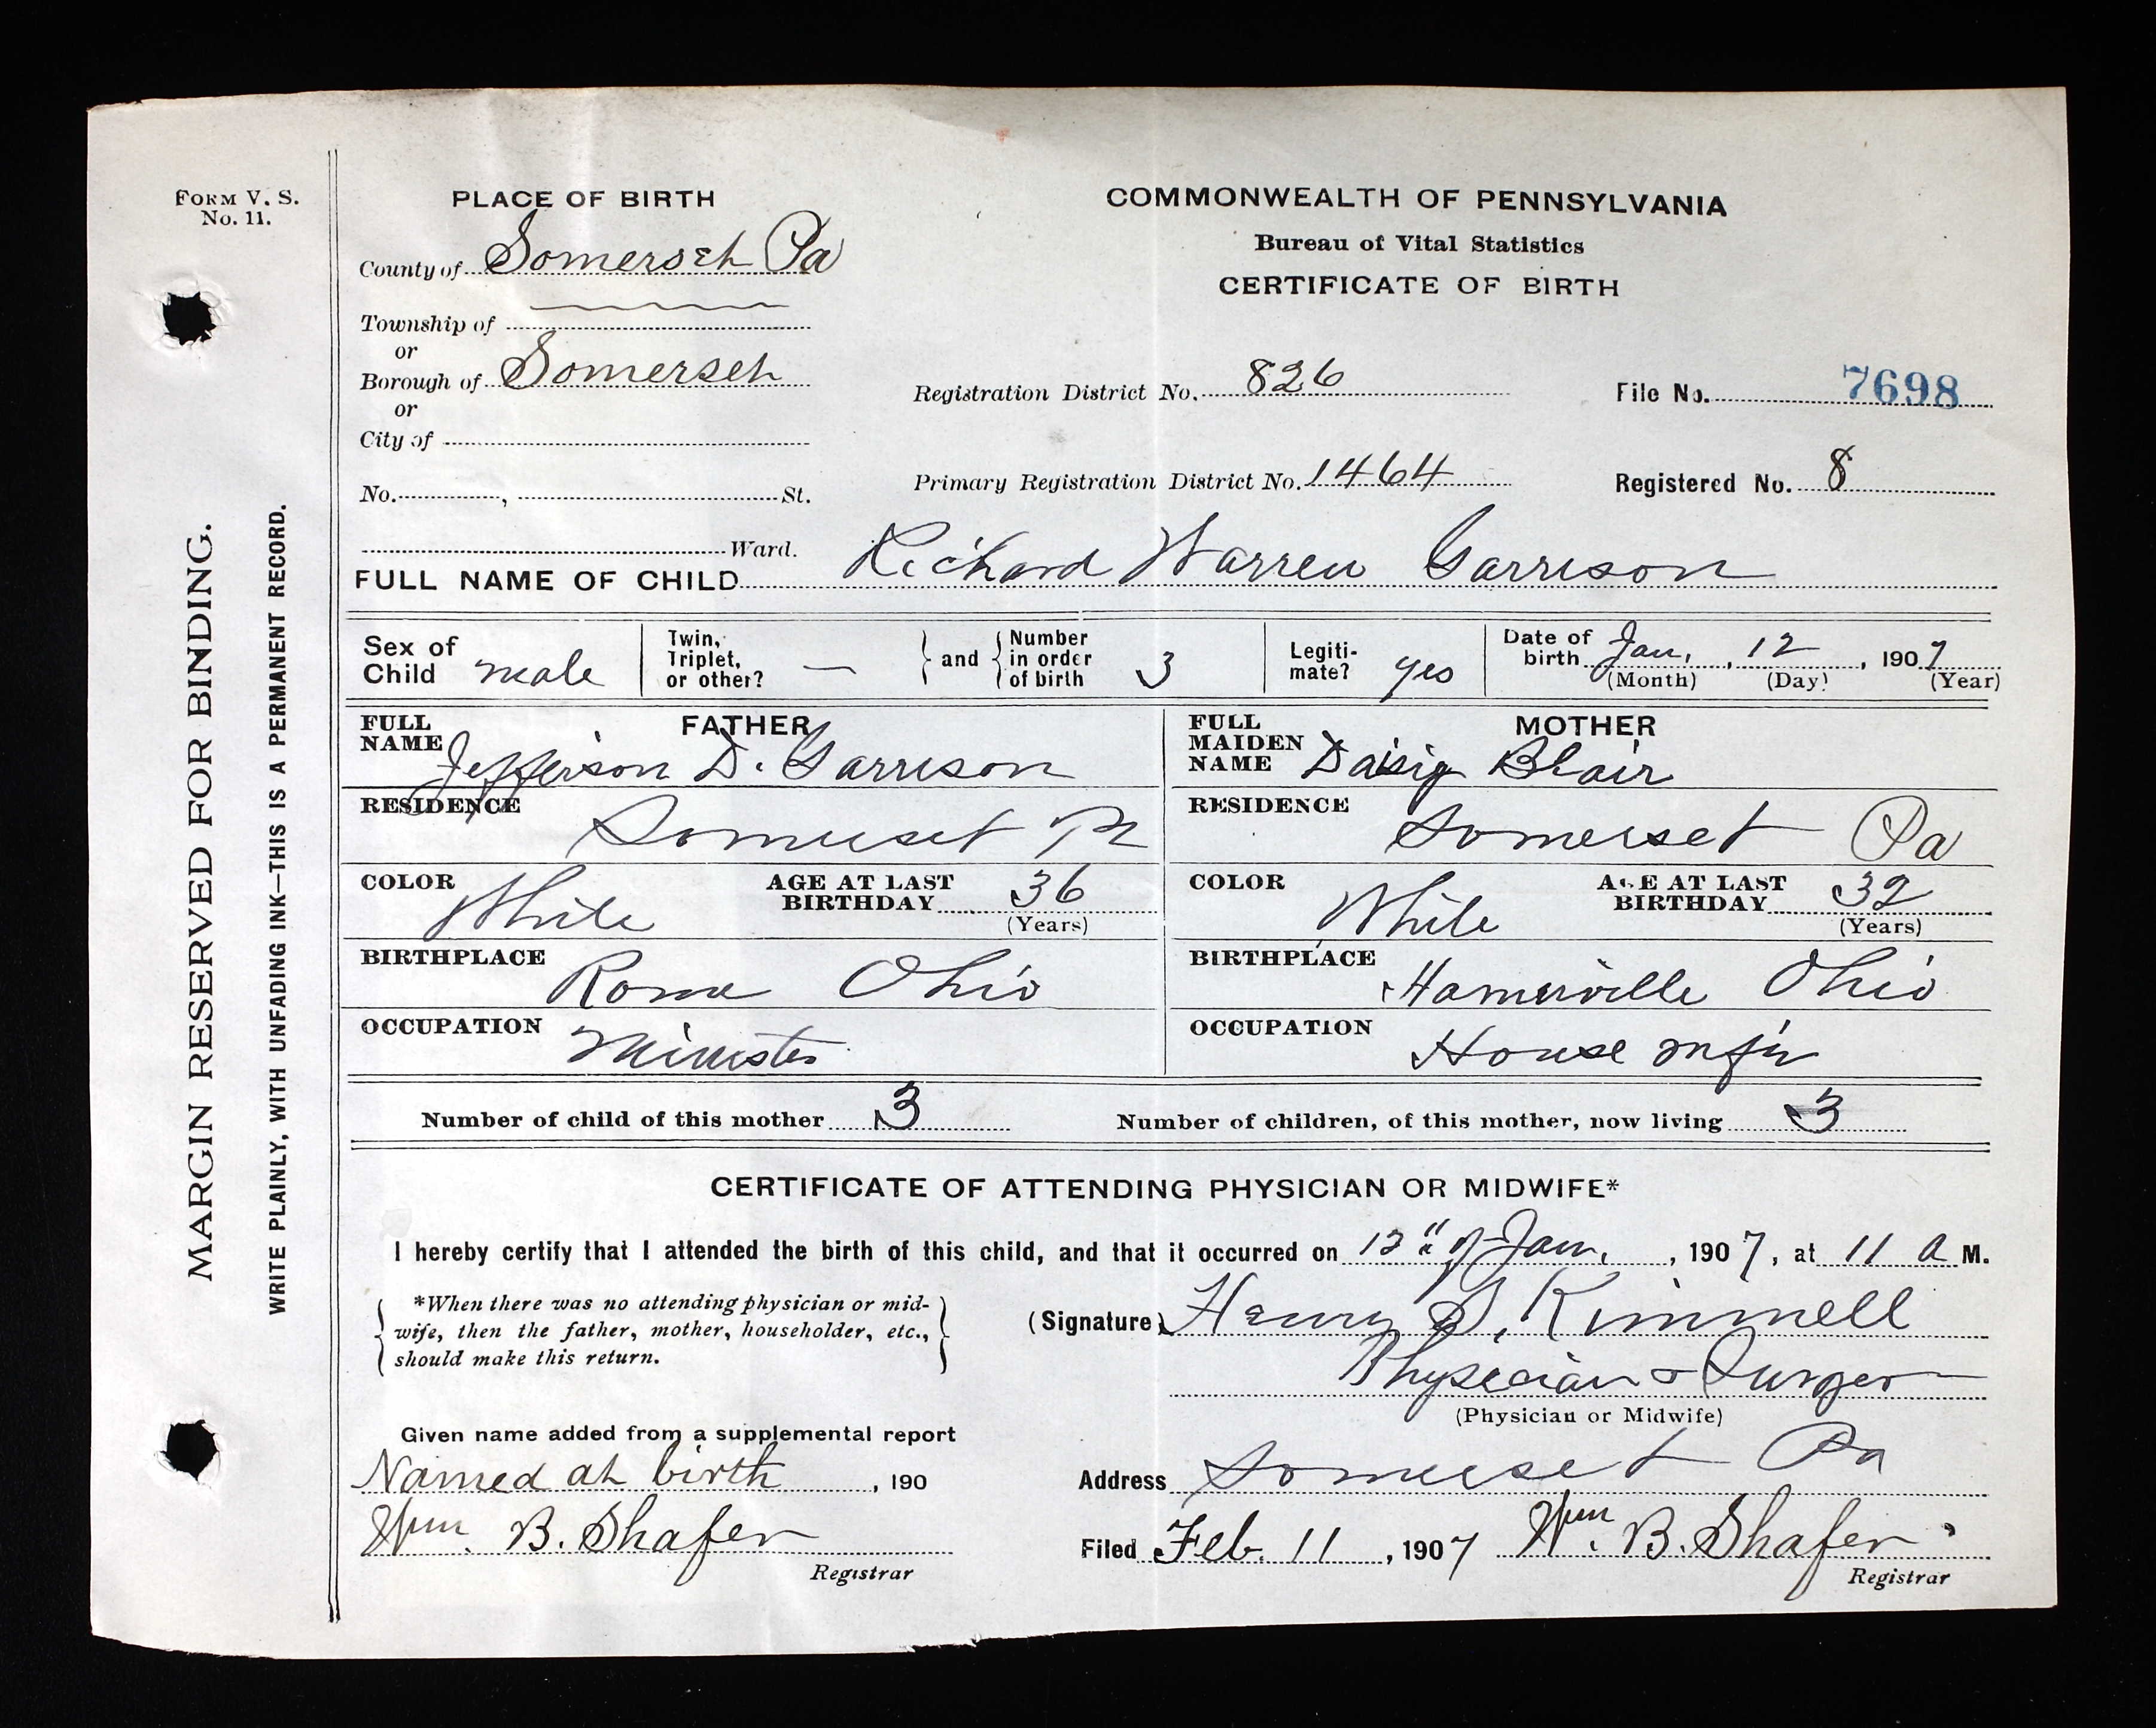 FORM V. S.
No. 11.
MARGIN RESERVED FOR BINDING.
WRITE PLAINLY, WITH UNFADING INK—THIS IS A PERMANENT RECORD.
PLACE OF BIRTH
County of Somerset Pa
Township of
or
Borough of Somerset
or
City of
No. , St.
Ward.
COMMONWEALTH OF PENNSYLVANIA
Bureau of Vital Statistics
CERTIFICATE OF BIRTH
Registration District No. 826
File No. 7698
Primary Registration District No. 1464
Registered No. 8
FULL NAME OF CHILD Richard Warren Garrison
Sex of Child male
Twin, Triplet, or other? —
and
Number in order of birth 3
Legiti-mate? yes
Date of birth Jan. , 12 , 1907
(Month) (Day) (Year)
FATHER
FULL NAME Jefferson D. Garrison
RESIDENCE Somerset Pa
COLOR White
AGE AT LAST BIRTHDAY 36
(Years)
BIRTHPLACE Rome Ohio
OCCUPATION Minister
MOTHER
FULL MAIDEN NAME Daisy Blair
RESIDENCE Somerset Pa
COLOR White
AGE AT LAST BIRTHDAY 32
(Years)
BIRTHPLACE Ohio
OCCUPATION House
Number of child of this mother 3
Number of children, of this mother, now living 3
CERTIFICATE OF ATTENDING PHYSICIAN OR MIDWIFE*
I hereby certify that I attended the birth of this child, and that it occurred on 12" of Jan. , 1907, at 11 a M.
*When there was no attending physician or mid-
wife, then the father, mother, householder, etc.,
should make this return.
(Signature) Henry S. Kimmell
Physician & Surgeon
(Physician or Midwife)
Given name added from a supplemental report
Named at birth , 190
Wm. B. Shafer
Registrar
Address Somerset Pa
Filed Feb. 11 , 1907 Wm. B. Shafer
Registrar